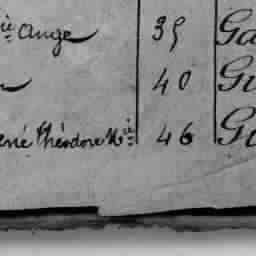 ie Ange 35 Ga
40 Gu
ené Théodore Mie 46 Gu